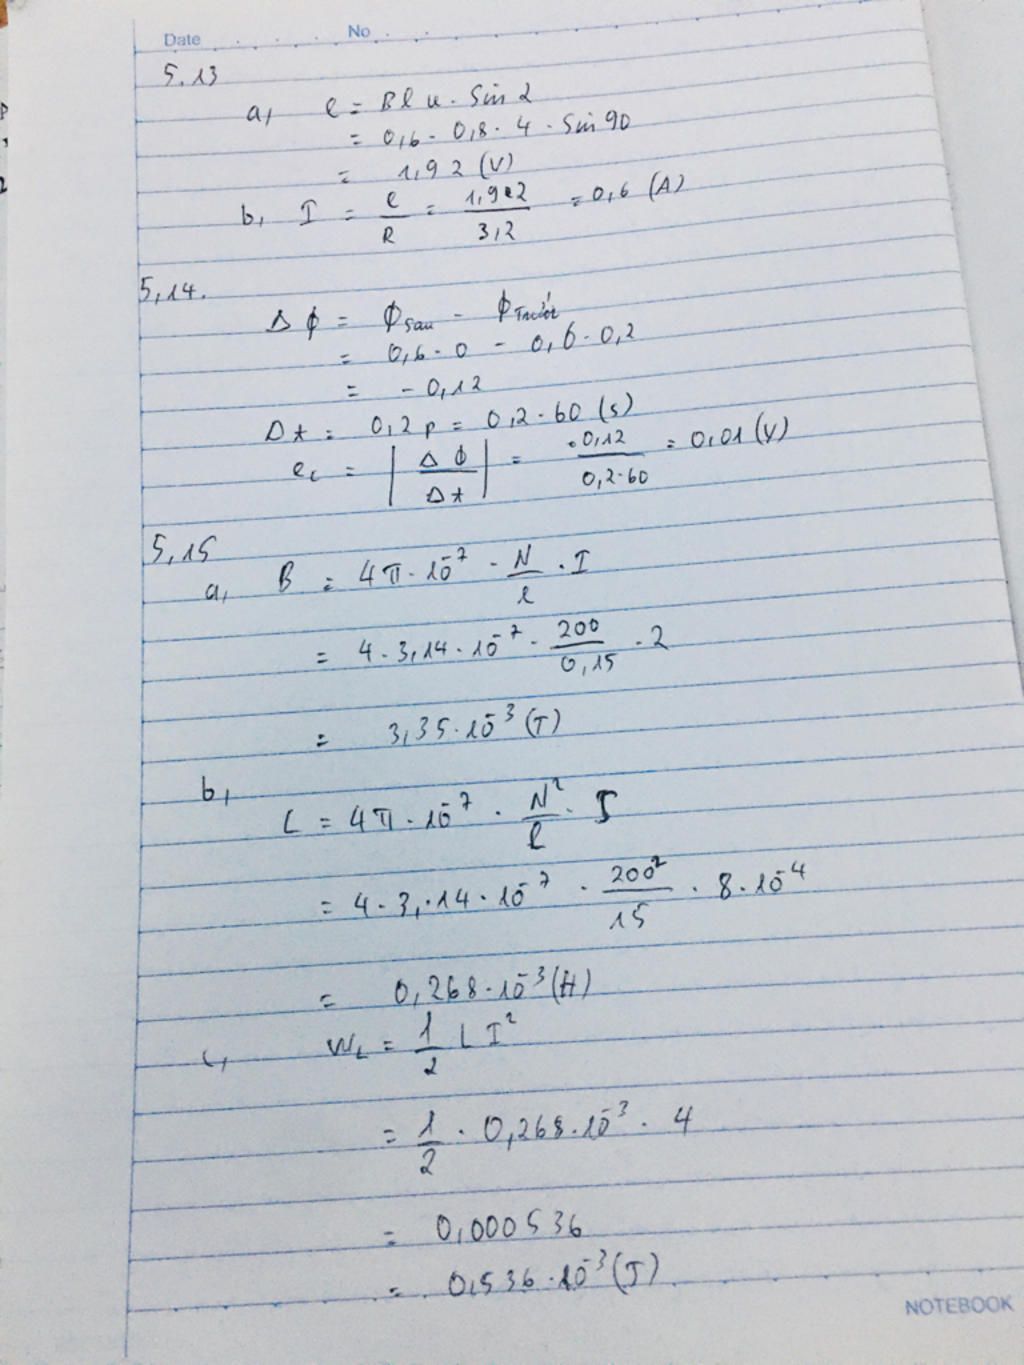 Date No
5.13
a, e = Blv. Sin 2
= 0,6 . 0,8 . 4 . Sin 90
= 1,92 (V)
b, I = e/R = 1,92/3,2 = 0,6 (A)
5,14.
Δϕ = ϕsau - ϕTrước
= 0,6 . 0 - 0,6 . 0,2
= - 0,12
Δt = 0,2 p = 0,2 . 60 (s)
ec = |Δϕ/Δt| = 0,12/0,2.60 = 0,01 (V)
5,15
a, B = 4π . 10⁻⁷ . N/l . I
= 4 . 3,14 . 10⁻⁷ . 200/0,15 . 2
= 3,35 . 10⁻³ (T)
b,
L = 4π . 10⁻⁷ . N²/l . S
= 4 . 3,14 . 10⁻⁷ . 200²/15 . 8 . 10⁻⁴
= 0,268 . 10⁻³ (H)
c, WL = 1/2 L I²
= 1/2 . 0,268 . 10⁻³ . 4
= 0,000536
= 0,536 . 10⁻³ (J)
NOTEBOOK